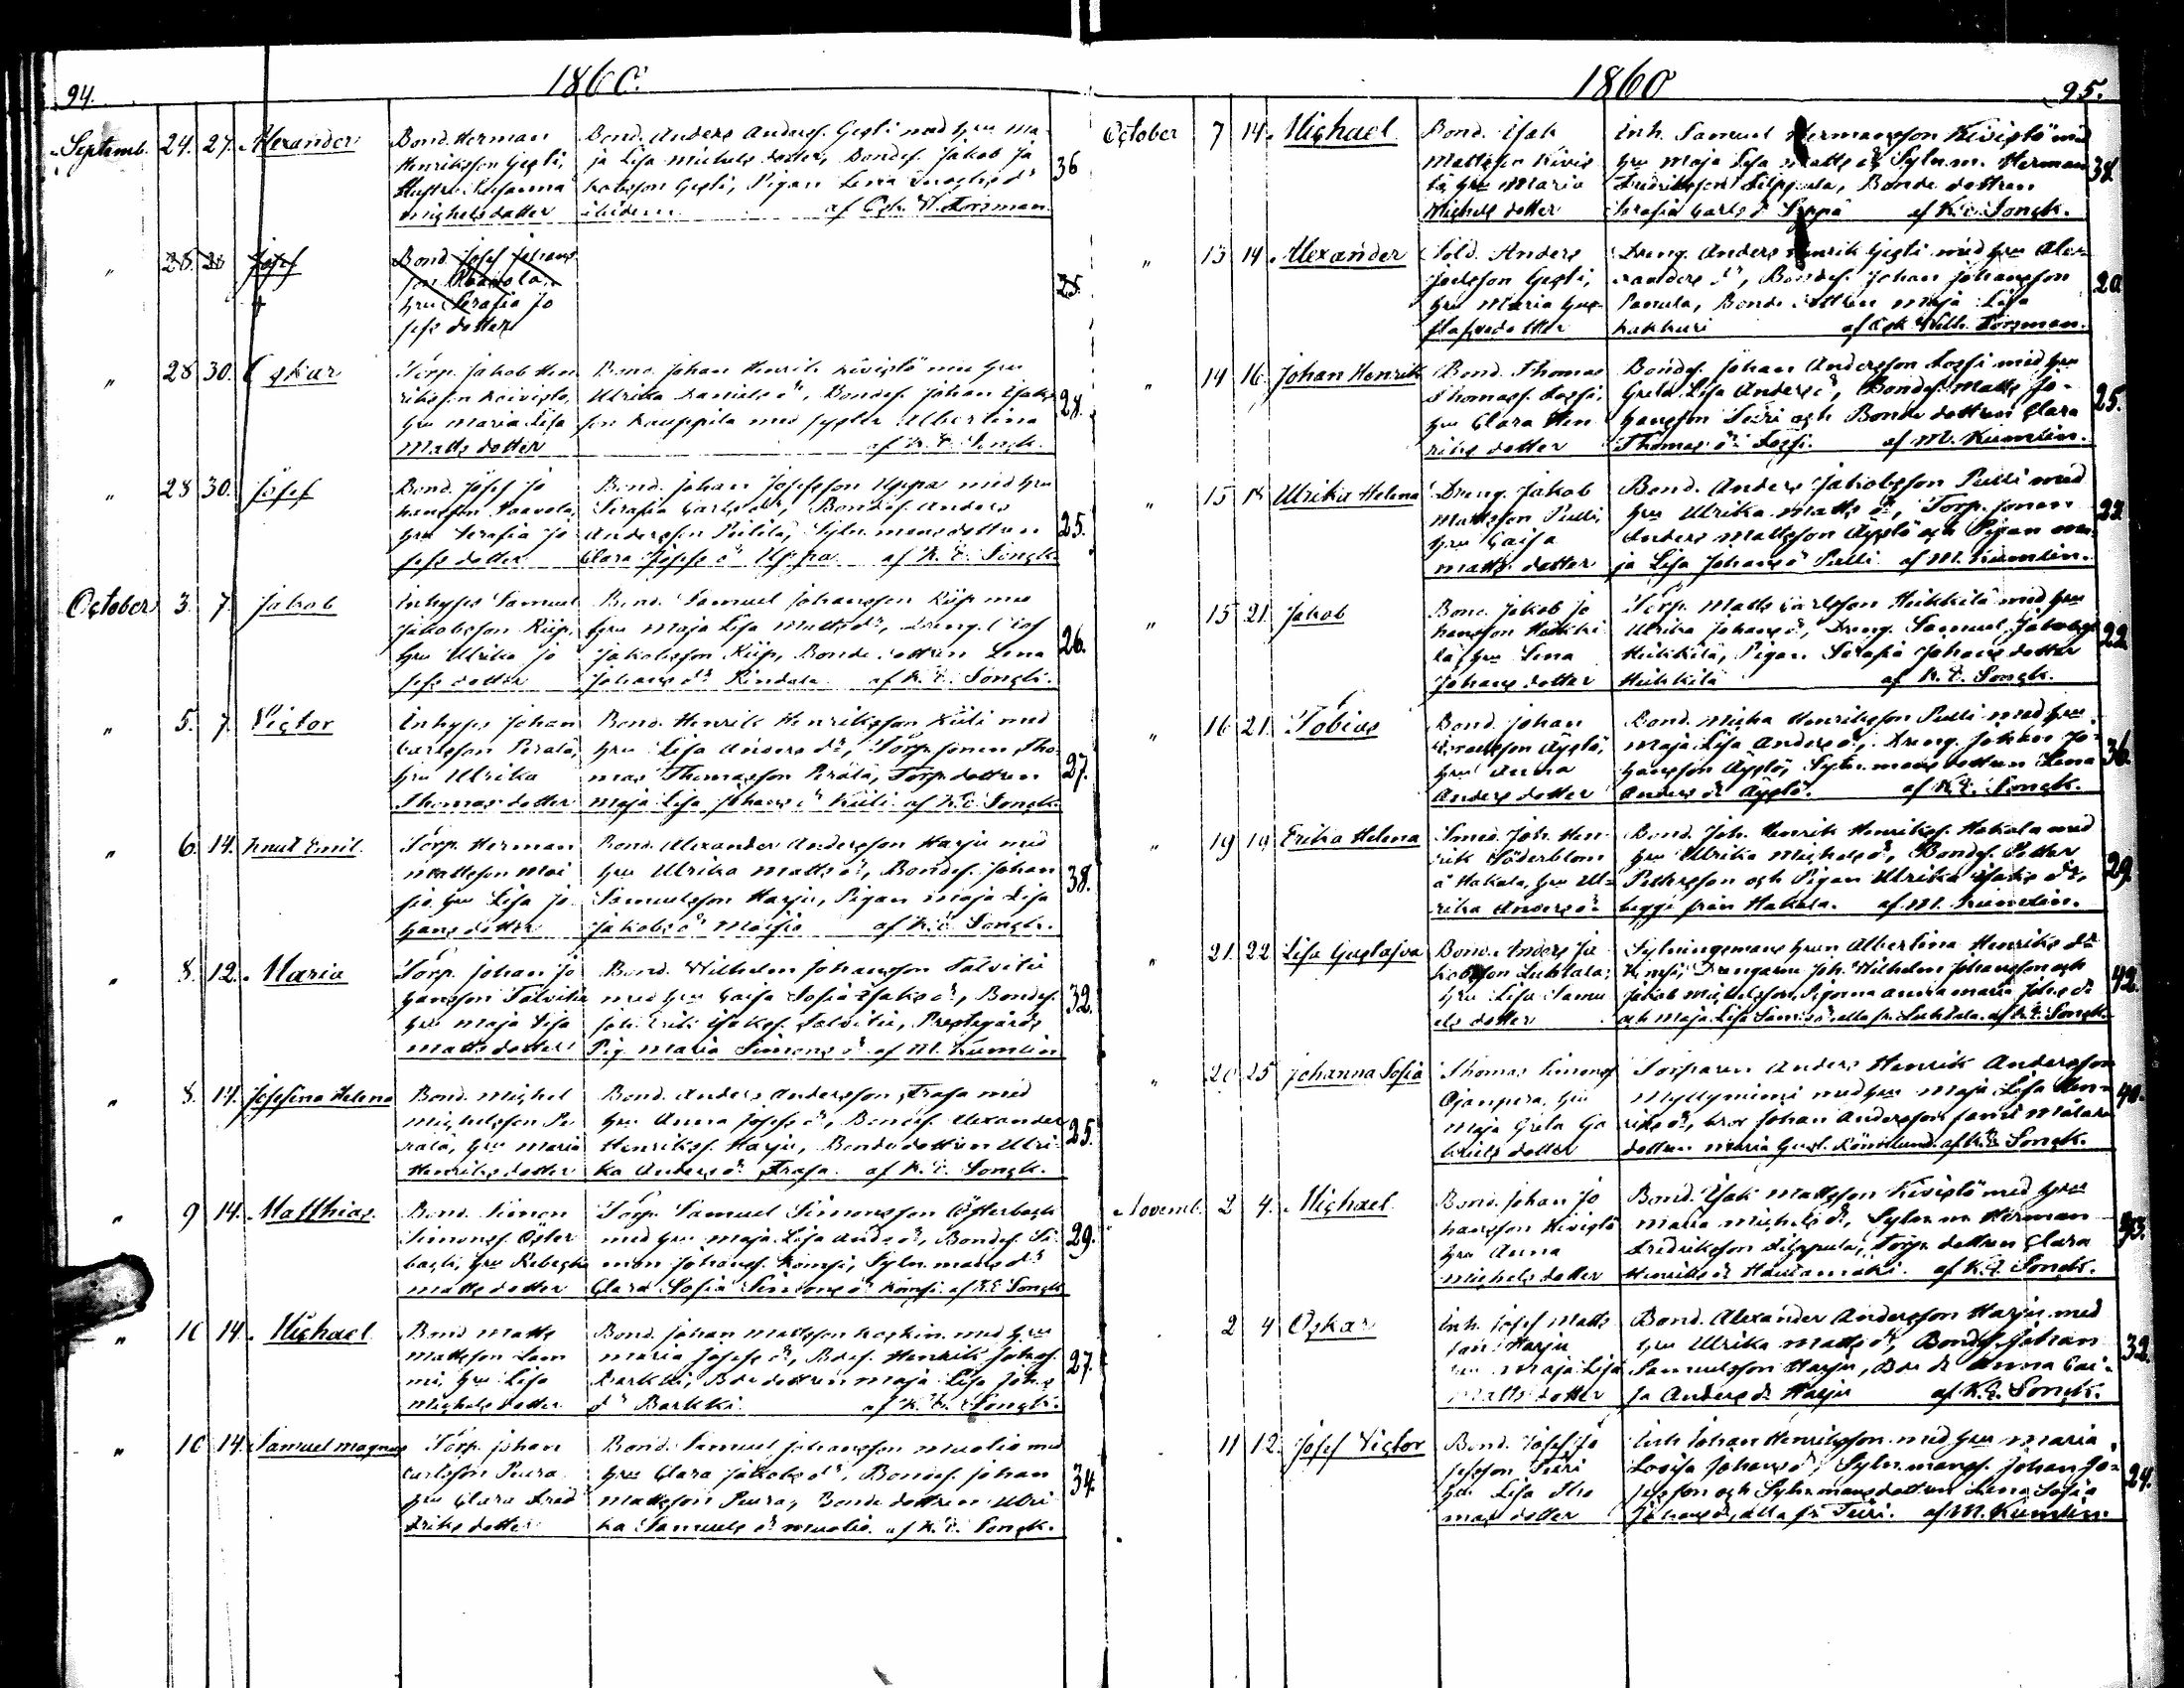 94.
1860.
Septemb. 24. 27. Alexander
Bond. Herman
Henriksson Gesti,
Hustru Susanna
Michelsdotter
Bond. Anders Andersf. Gesti med hru Ma-
ja Lisa Michels dotter, Bondes. Jakob Ja
kobsson Gesti, Pigan Lena
af Osk. W. Forsman.
36
" 28. 28 Josef
Bond. Josef Johans
son Raavola,
hru Serafia Jo
sefs dotter
25.
" 28 30. Oskar
Torp. Jakob Hen
riksson Koivisto,
hru Maria Lisa
Matts dotter
Bond. Johan Henrik Kivistö med hru
Ulrika Daniels dr, Bondes. Johan Isaks
son Kauppila med syster Albertina
af K. E. Sonck.
28.
" 28 30. Josef
Bond. Josef Jo
hansson Raavola,
hru Serafia Jo
sefs dotter
Bond. Johan Josefsson Uppa med hru
Serafia Carls dr, Bondes. Anders
Andersson Pietilä, Sytn. mans dottren
Clara Josefs dr Uppa. af K. E. Sonck.
25.
October 3. 7. Jakob
Inhyses Samuel
Jakobsson Kiip,
hru Ulrika Jo
sefs dotter
Bond. Samuel Johansson Kiip med
hru Maja Lisa Matts dr, Dreng.
Jakobsson Kiip, Bonde dottren Lena
Johans dr Rindala. af K. E. Sonck.
26.
" 5. 7. Victor
Inhyses Johan
Carlsson Perälä,
hru Ulrika
Thomas dotter
Bond. Henrik Henriksson Kiili med
hru Lisa Anders dr, Torp. sonen Tho-
mas Thomasson Perälä, Torp. dottren
Maja Lisa Johans dr Kiili af K. E. Sonck.
27.
" 6. 14. Knut Emil.
Torp. Herman
Mattsson Moi
sio hru Lisa Jo
hans dotter
Bond. Alexander Andersson Harju med
hru Ulrika Matts dr, Bondes. Johan
Samuelsson Harju, Pigan Maja Lisa
Jakobs dr Moisio af K. E. Sonck.
38.
" 8. 12. Maria
Torp. Johan Jo
hansson Talvitie
hru Maja Lisa
Matts dotter
Bond. Wilhelm Johansson Talvitie
med hru Caisa Sofia Isaks dr, Bondes.
Joh. Erik Isaksf. Talvitie, Prestgårds
Pig. Maria Simons dr af M. Kumlin
32.
" 8. 14. Josefina Helena
Bond. Michel
Michelsson Pe
rälä, hru Maria
Henriks dotter
Bond. Anders Andersson Trasa med
hru Anna Josefs dr, Bondes. Alexander
Henriksf. Harju, Bonde dottren Ulri
ka Anders dr Trasa. af K. E. Sonck.
25.
" 9 14. Matthias.
Bond. Simon
Simonsf. Öster
back, hru Rebecka
Matts dotter
Torp. Samuel Simonsson Österback
med hru Maja Lisa Ands dr, Bondes. Si
mon Johansf. Komsi, Sytn. mans dr
Clara Sofia Simons dr Komsi. af K. E. Sonck
29.
" 10 14. Michael
Bond Matts
Mattsson Lam
mi, hru Lisa
Michels dotter
Bond. Johan Mattsson med hru
Maria Josefs dr, Bdes. Henrik Johsf.
Barkki, Bde dottren Maja Lisa Johs
dr Barkki. af K. E. Sonck.
27.
" 10 14. Samuel Magnus
Torp. Johan
Carlsson Peura
hru Clara Fred
driks dotter
Bond. Samuel Johansson Muolio med
hru Clara Jakobs dr, Bondes. Johan
Mattsson Peura, Bonde dottren Ulri
ka Samuels dr Muolio. af K. E. Sonck.
34.
1860
95.
October 7 14. Michael
Bond. Isak
Mattsson Kivis
tö, hru Maria
Michels dotter
Inh. Samuel Hermansson Kivistö med
hru Maja Lisa Matts dr, Sytn. m. Herman
Fredriksson Filppula, Bonde dottren
Serafia Carls dr Seppä af K. E. Sonck.
38.
" 13 14 Alexander
Sold. Anders
Joelsson Gesti,
hru Maria Gus-
stafsdotter
Dreng. Anders Henrik Gesti med hru Ale-
xanders dr, Bondes. Johan Johansson
Panula, Bonde dottren Maja Lisa
Kakkuri af Osk. Wilh. Forsman.
20
" 14 16. Johan Henrik
Bond. Thomas
Thomasf. Fossi,
hru Clara Hen
riks dotter
Bondes. Johan Andersson Fossi med hru
Greta Lisa Anders dr, Bondes. Matts Jo-
hansson Tuiri och Bonde dottren Clara
Thomas dr Fossi. af M. Kumlin.
25.
" 15 18 Ulrika Helena
Dreng. Jakob
Mattsson Pulli,
hru Caisa
Matts dotter
Bond. Anders Jakobsson Pulli med
hru Ulrika Matts dr, Torp. sonen
Anders Mattsson Äystö och Pigan Ma-
ja Lisa Johans dr Pulli af M. Kumlin.
22.
" 15 21. Jakob
Bond. Jakob Jo
hansson Heikki
lä, hru Lena
Johans dotter
Torp. Matts Carlsson Heikkilä med hru
Ulrika Johans dr, Dreng. Samuel Jakobsf
Heikkilä, Pigan Serafia Johans dotter
Heikkilä af K. E. Sonck.
22
" 16 21. Tobias
Bond. Johan
Äystö,
hru Anna
Anders dotter
Bond. Micka Henriksson Pulli med hru
Maja Lisa Anders dr, Dreng. Johan Jo-
hansson Äystö, Sytn. mans dottren Lena
Anders dr Äystö. af K. E. Sonck.
36.
" 19 19 Erika Helena
Smed. Joh. Hen
rik Söderblom
å Hakala, hru Ul-
rika Anders dr
Bond. Joh. Henrik Henriksf. Hakala med
hru Ulrika Michels dr, Bondes. Petter
Pettersson och Pigan Ulrika Isaks dr,
begge från Hakala. af M. Kumlin.
29.
" 21. 22 Lisa Gustafva
Bond. Anders Ja
kobsson Luhtala,
hru Lisa Samu
els dotter
Sytningsmans hrun Albertina Henriks dr
Komsi, Drengarne Joh. Wilhelm Johansson och
Jakob Michelsson, Pigorna Anna Maria Johs dr
och Maja Lisa Sams dr alla fr. Luhtala. af K. E. Sonck.
42.
" 20 25 Johanna Sofia
Thomas Simonsf
Ojanpera, hru
Maja Greta Ga
briels dotter
Torparen Anders Henrik Andersson
Myllyniemi med hru Maja Lisa Hen-
riks dr, bror Johan Andersson samt Målare
dottren Maria Gust. Rönnlund. af K. E. Sonck.
40.
Novemb. 2 4. Michael
Bond. Johan Jo
hansson Kivistö
hru Anna
Michels dotter
Bond. Isak Mattsson Kivistö med hru
Maria Michels dr, Sytn. m. Herman
Fredriksson Filppula, Torp. dottren Clara
Henriks dr Hautamäki. af K. E. Sonck.
33.
2 4 Oskar
Inh. Josef Matts
son Harju
hru Maja Lisa
Matts dotter
Bond. Alexander Andersson Harju med
hru Ulrika Matts dr, Bondes. Johan
Samuelsson Harju, Bde dr Anna Cai-
sa Anders dr Harju af K. E. Sonck.
32.
11 12. Josef Victor
Bond. Josef Jo
sefsson Tuiri
hru Lisa Tho
mas dotter
Inh Johan Henriksson med hru Maria
Lovisa Johans dr, Sytn. mansf. Johan Jo-
sefsson och Sytn. mans dottren Lena Sofia
Johans dr, alla fr. Tuiri. af M. Kumlin.
24.